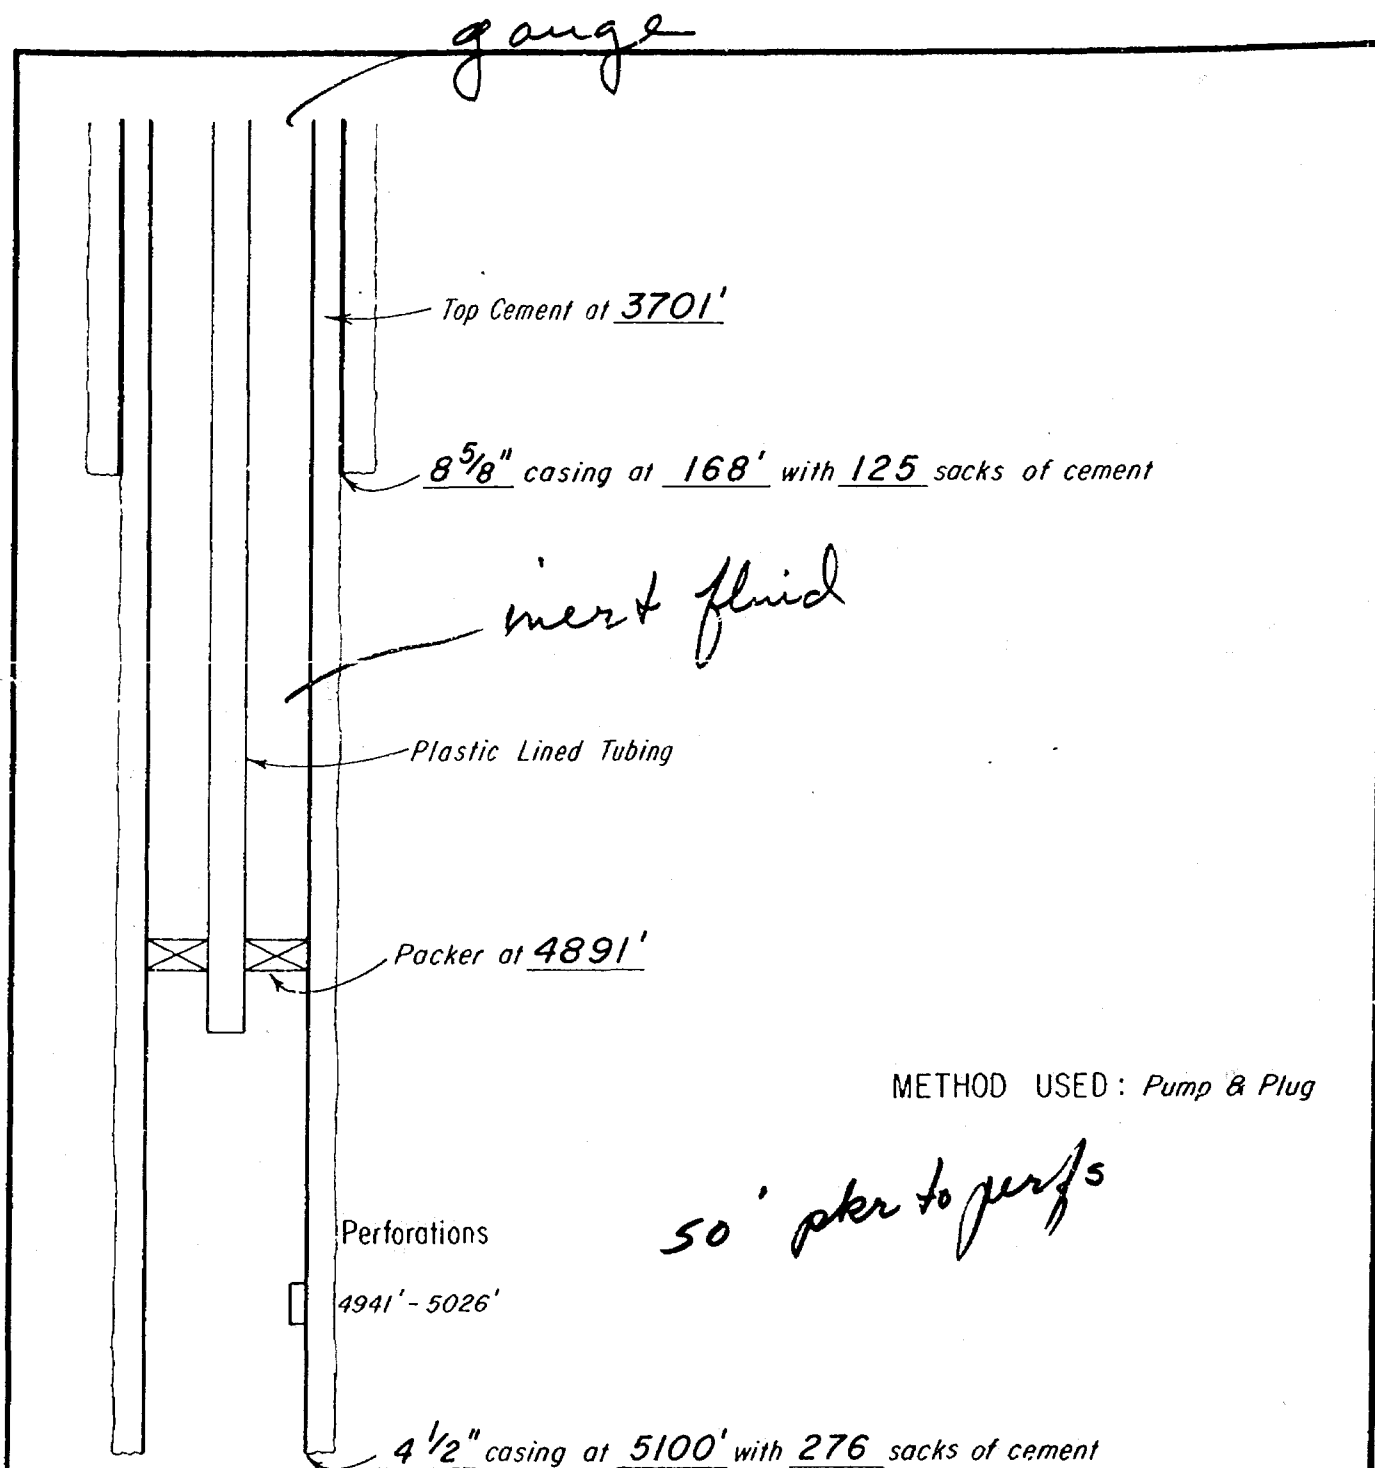 gauge
Top Cement at 3701'
8 5/8" casing at 168' with 125 sacks of cement
inert fluid
Plastic Lined Tubing
Packer at 4891'
METHOD USED: Pump & Plug
50' pkr to perfs
Perforations
4941' - 5026'
4 1/2" casing at 5100' with 276 sacks of cement